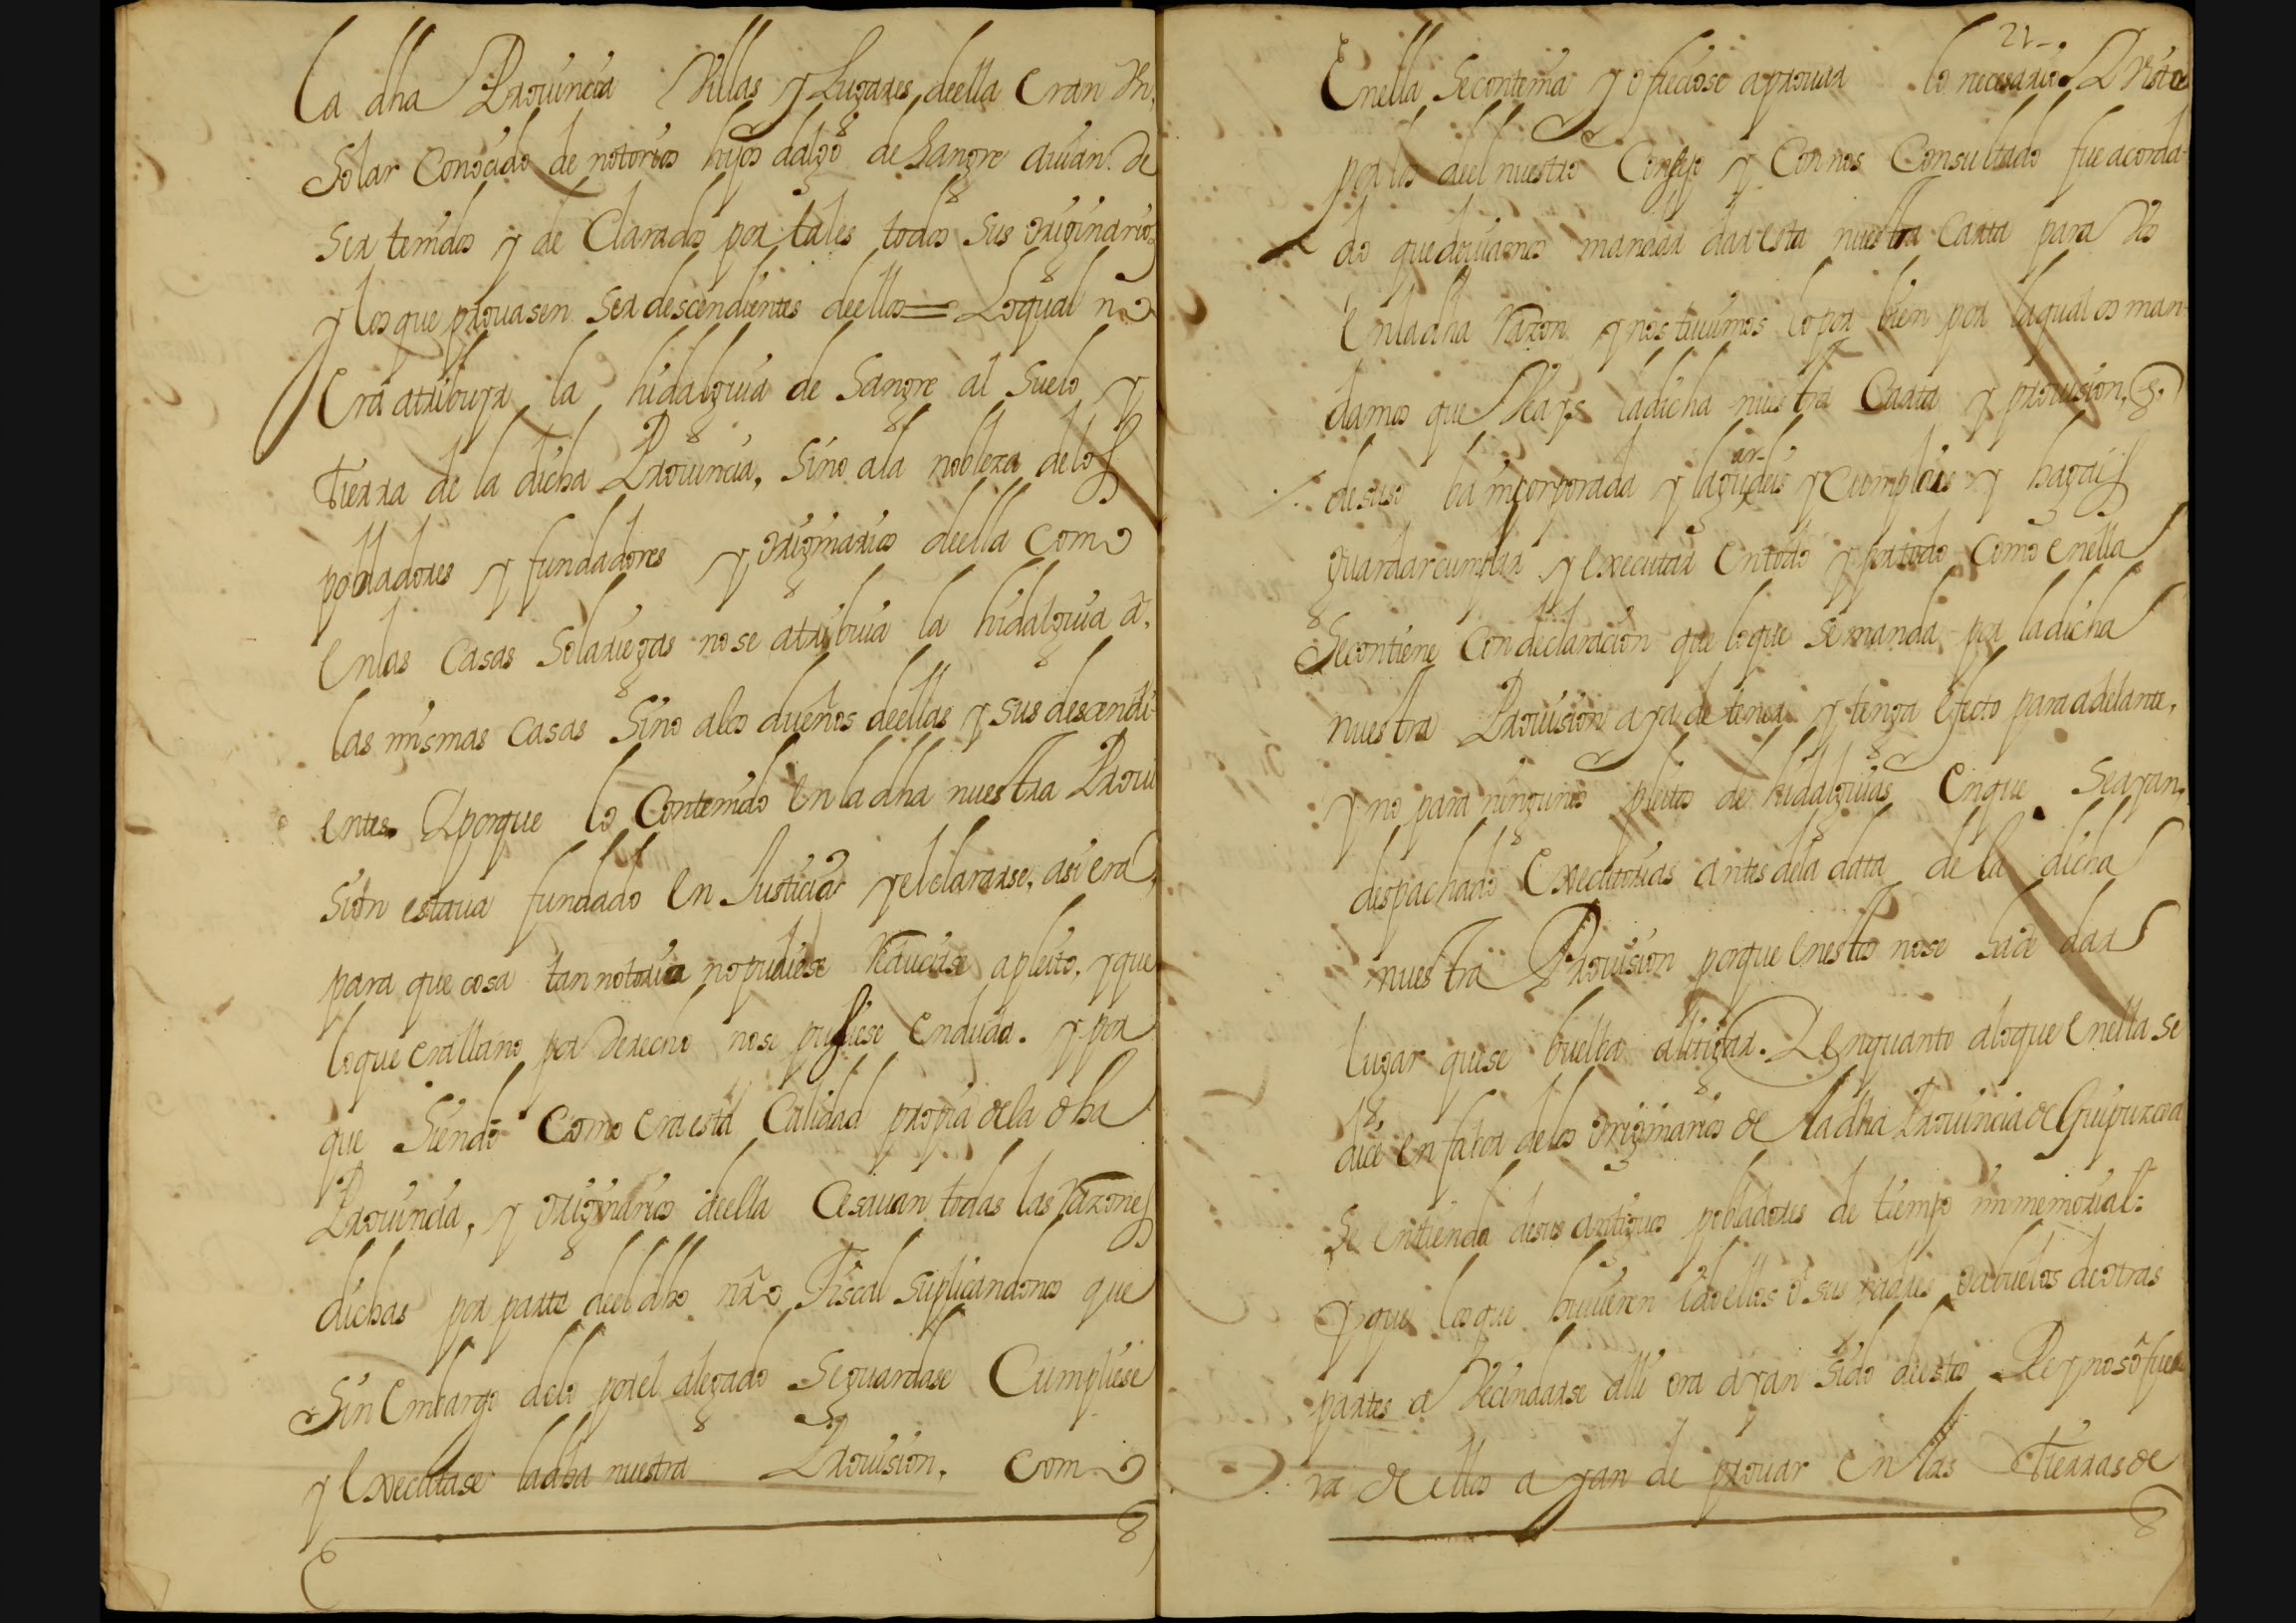 la dha Prouincia Villas y Lugares deella eran Un.
Solar Conocido de notorios hijos dalgo de Sangre auian de
ser tenidos y de Clarados por tales todos sus originarios
y los que prouasen ser descendientes deellos = Loqual no
era atribuyr la hidalguia de Sangre al Suelo y
Tierra de la dicha Prouincia, Sino ala nobleza delos
pobladores y fundadores y originarios deella como
enlas Casas Solariegas nose atribuia la hidalguia a,
las mismas casas Sino alos dueños deellas y sus descendi-
entes. Y porque lo Contenido en la dha nuestra Proui
sion estaua fundado en Justicia y el clararse, asi era,
para que cosa tan notoria nopudiese Reducirse a pleito, y que
loque era llano por derecho nose pusiese enduda. y por
que Siendo Como era esta Calidad propia dela dha
Prouincia, y originarios deella Cesauan todas las Razones
dichas por parte deel dho nro Fiscal Suplicandonos que
Sin embargo delo porel alegado Seguardase Cumpliese
y executase ladha nuestra Prouision, como
21-
Enella Secontenia y ofreciose aprouar lo necesario. Y Visto
por los deel nuestro Consejo y Connos Consultado fue acorda-
do que deuiamos mandar dar esta nuestra Carta para Vos
enladha Razon y nos tuuimos lo por bien por laqual os man-
damos que Veays ladicha nuestra Carta y prouision, q.
desuso ba incorporada y la guardeis y Cumplais y hagais
guardar cumplir y executar entodo y portodo Como enella
Secontiene Con declaracion que loque Se manda por ladicha
nuestra Prouision aya de tener y tenga efecto para adelante,
y no para ningunos pleitos de hidalguias enque Se ayan.
despachado executorias antes dela data de la dicha
nuestra Prouision porque enestos nose hade dar
lugar quese buelba alitigar. Y Enquanto aloque enella se
dice en fabor delos originarios de la dha Prouincia de Guipuzcoa
Se entienda desus antiguos pobladores de tiempo inmemorial:
y que losque huuieren ido ellos o sus padres o abuelos de otras
partes a Vecindarse alli ora ayan Sido destos Reynos o fue
ra de ellos ayan de prouar en las Tierras de